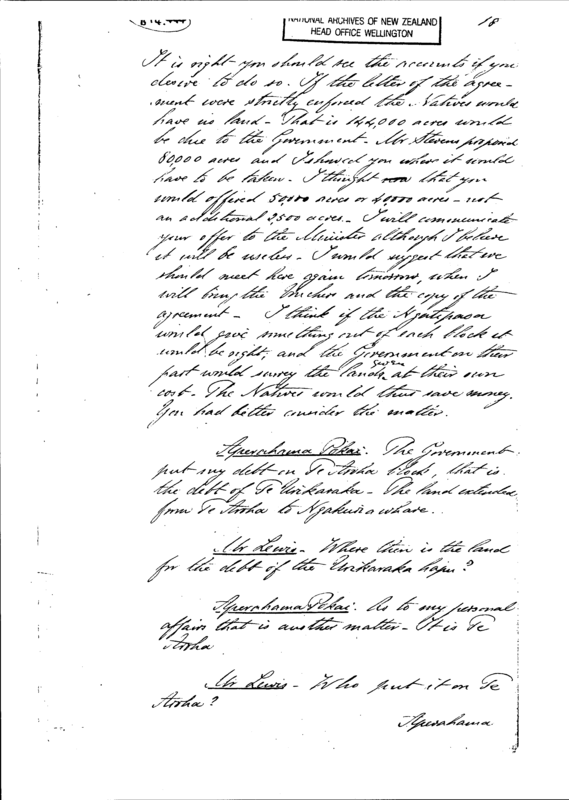 NATIONAL ARCHIVES OF NEW ZEALAND
HEAD OFFICE WELLINGTON
18
It is right you should see the accounts if you
desire to do so. If the letter of the agree-
ment were strictly enforced the Natives would
have no land - That is 144,000 acres would
be due to the Government - Mr Stevens proposed
80,000 acres and I showed you where it would
have to be taken - I thought that you
would offered 50,000 acres or 40000 acres - not
an additional 2,500 acres - I will communicate
your offer to the Minister although I believe
it will be useless - I would suggest that we
should meet here again tomorrow, when I
will bring the vouchers and the copy of the
agreement - I think if the Ngatipaoa
would give something out of each block it
would be right, and the Government on their
part would survey the lands given at their own
cost - The Natives would thus save money.
You had better consider the matter.
Aperahama Pokai. The Government
put my debt on Te Aroha block, that is
the debt of Te Urikaraka - The land extended
from Te Aroha to Ngakuriawhare.
Mr Lewis - Where then is the land
for the debt of the Urikaraka hapu?
Aperahama Pokai. As to my personal
affairs that is another matter - It is Te
Aroha
Mr Lewis - Who put it on Te
Aroha?
Aperahama